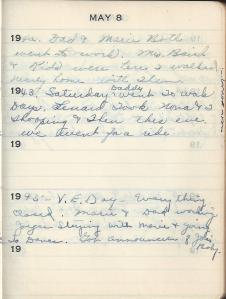 MAY 8
19 42. Dad & Marie Both
went to work. Mrs. Baird
& Kids were here & walked
home with them.
1943. Saturday Daddy went to work
Days. Lenard took Nona & I
shopping & then this eve.
we went for a ride
19
1945- V.E. Day- Everything
closed. Marie & Dad working
Joyce staying with Marie & going
to Dover. announcer
19